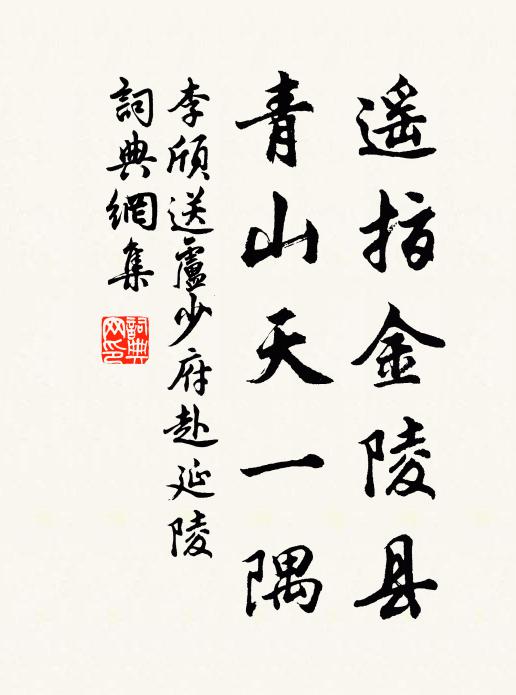 遥指金陵县
青山天一隅
李頎送盧少府赴延陵
詞典網集
詞典网印